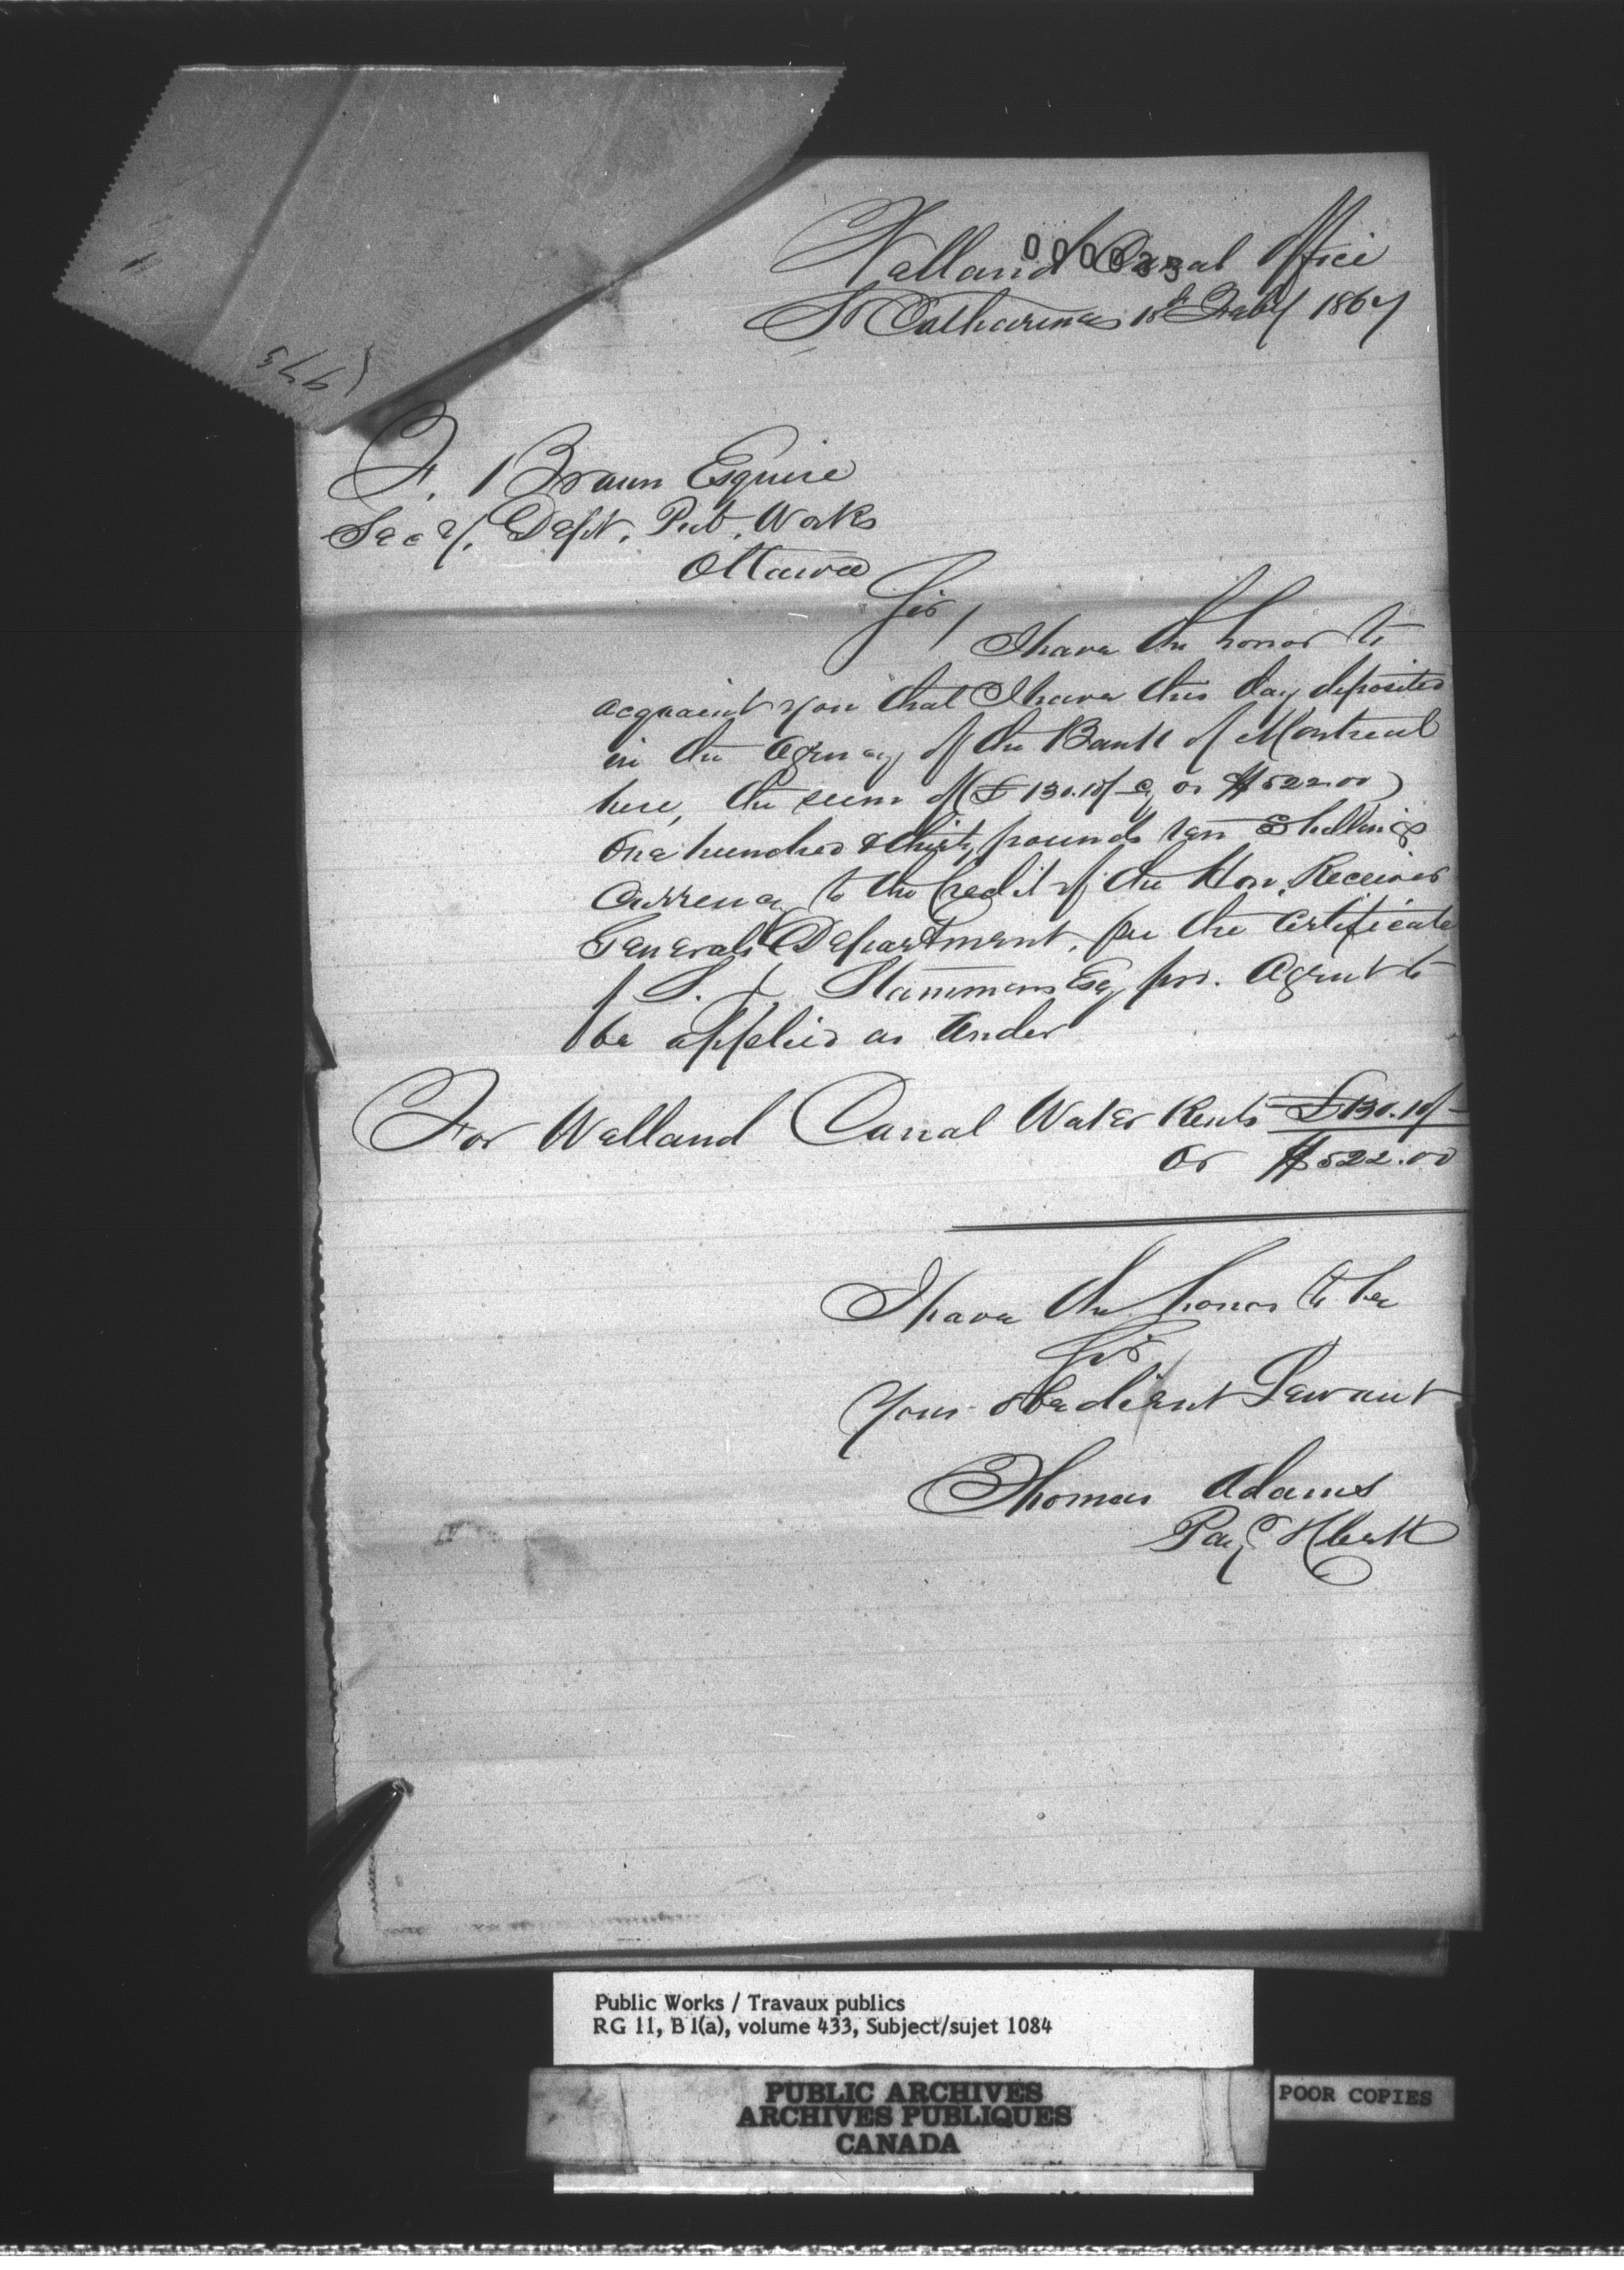 000023
Welland Canal Office
St Catharines 18th Feby 1867
F. Braun Esquire
Secy. Dept. Pub. Works
Ottawa
Sir /
I have the honor to
acquaint you that I have this day deposited
in the Agency of the Bank of Montreal
here, the sum of (£130.10/- Cy or $522.00)
One hundred & thirty pounds ten Shillings
Currency to the Credit of the Hon. Receiver
Generals Department, per the Certificate
of Hammons Esq pro. Agent to
be applied as Under
For Welland Canal Water Rents £130.10/-
or $522.00
I have the honor to be
Sir
Your obedient Servant
Thomas Adams
Public Works / Travaux publics
RG 11, B 1(a), volume 433, Subject/sujet 1084
PUBLIC ARCHIVES
ARCHIVES PUBLIQUES
CANADA
POOR COPIES